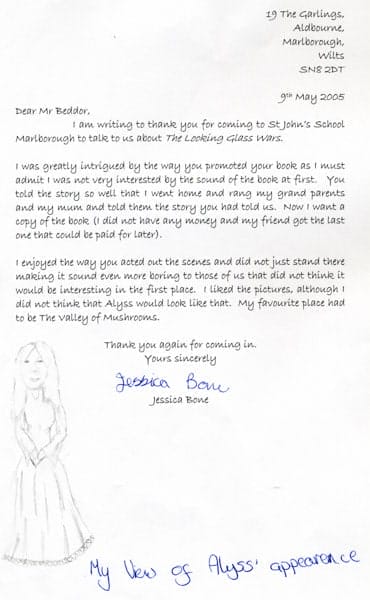 19 The Garlings,
Aldbourne,
Marlborough,
Wilts
SN8 2DT
9th May 2005
Dear Mr Beddor,
I am writing to thank you for coming to St John's School
Marlborough to talk to us about The Looking Glass Wars.
I was greatly intrigued by the way you promoted your book as I must
admit I was not very interested by the sound of the book at first. You
told the story so well that I went home and rang my grand parents
and my mum and told them the story you had told us. Now I want a
copy of the book (I did not have any money and my friend got the last
one that could be paid for later).
I enjoyed the way you acted out the scenes and did not just stand there
making it sound even more boring to those of us that did not think it
would be interesting in the first place. I liked the pictures, although I
did not think that Alyss would look like that. My favourite place had
to be The Valley of Mushrooms.
Thank you again for coming in.
Yours sincerely
Jessica Bone
Jessica Bone
My View of Alyss' appearence